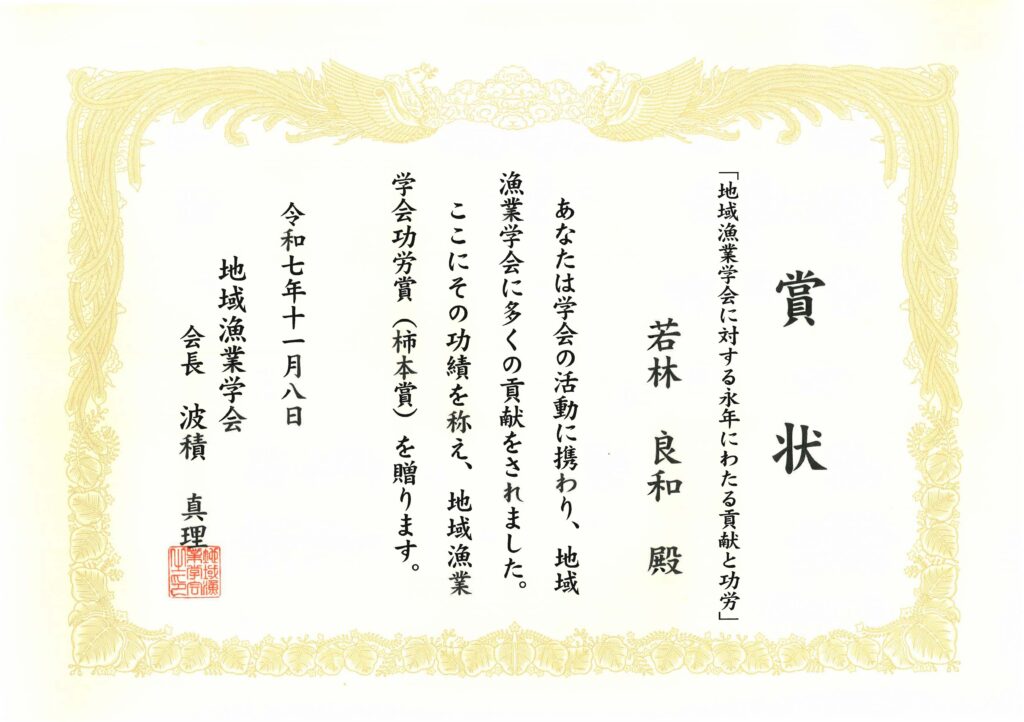 賞状
「地域漁業学会に対する永年にわたる貢献と功労」
若林 良和 殿
あなたは学会の活動に携わり、地域
漁業学会に多くの貢献をされました。
ここにその功績を称え、地域漁業
学会功労賞(柿本賞)を贈ります。
令和七年十一月八日
地域漁業学会
会長 波積 真理
地域漁
業学会
之印